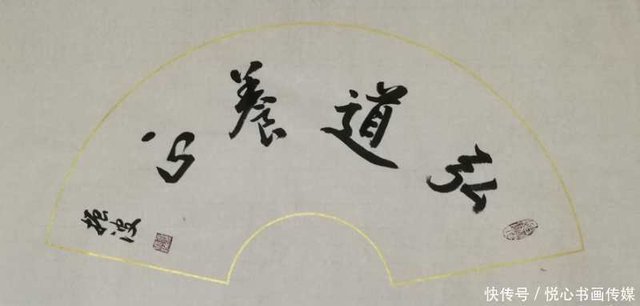 弘道養心
振波
快传号／悦心书画传媒